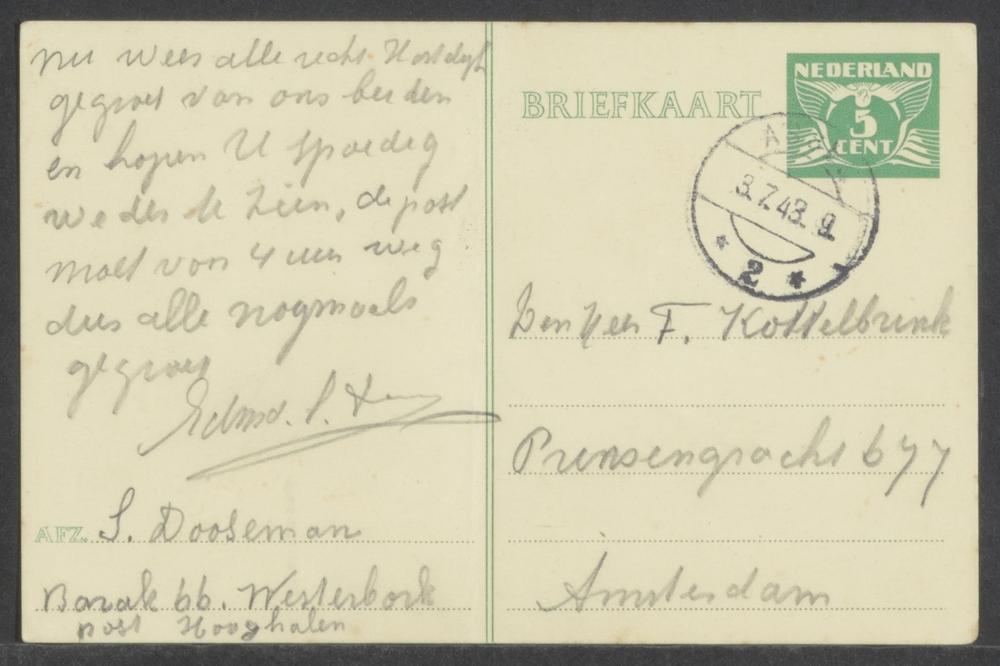 nu wees alle recht Hartelijk
gegroet van ons beiden
en hopen U spoedig
weder te zien, de post
moet voor 4 uur weg
dus alle nogmaals
gegroet
AFZ. S. Dooseman
Barak 66. Westerbork
post Hooghalen
BRIEFKAART
NEDERLAND
5
CENT
3.7.43. 9.
2
Den Heer F. Kottelbrink
Prinsengracht 677
Amsterdam